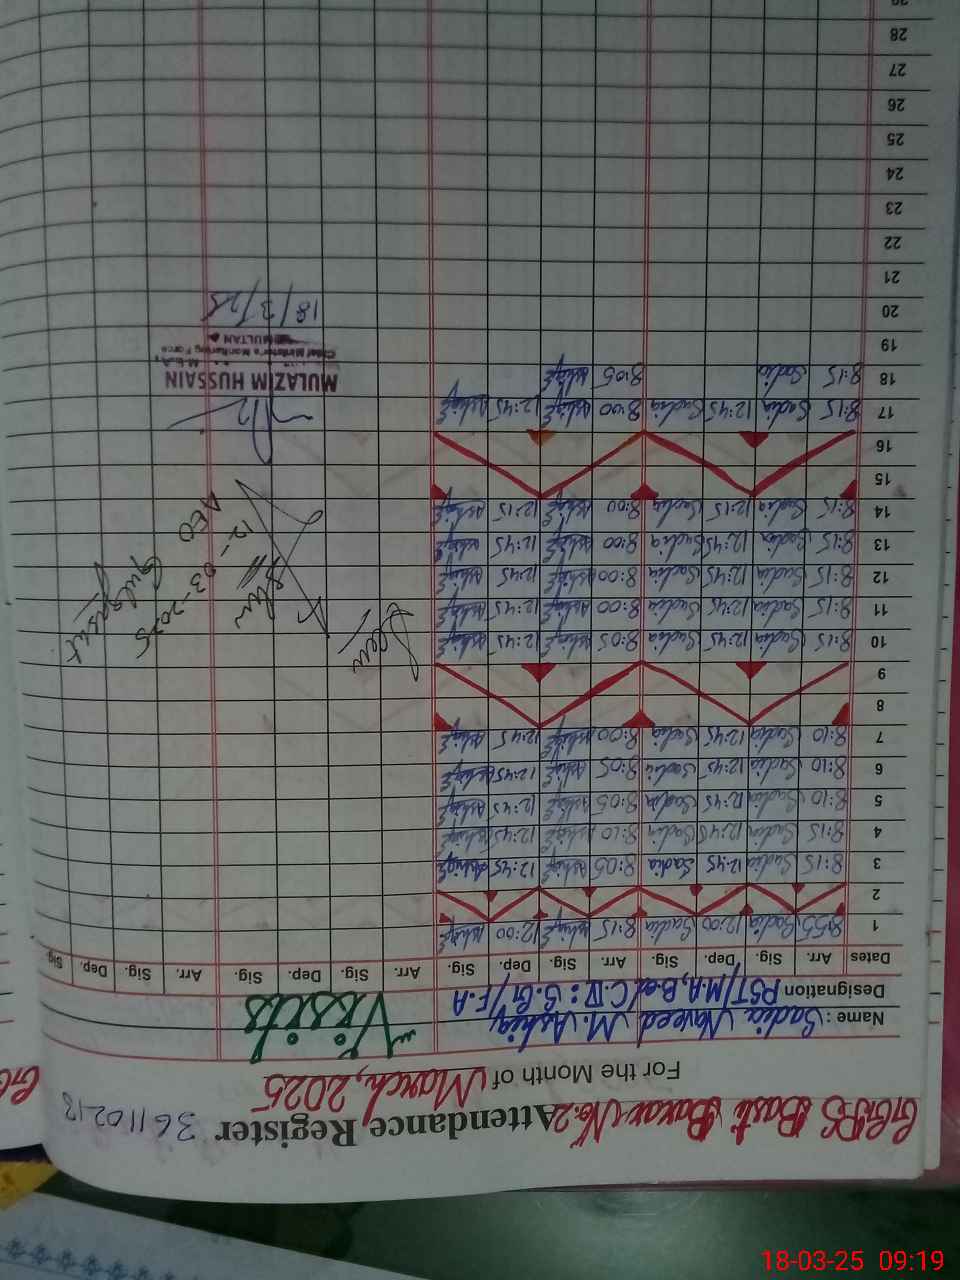 GGPS Basti Boxar No.2 Attendance Register 36110218
For the Month of March, 2025
Name : Sadia Naveed M. Ashiq Visits
Designation PST/M.A, B.ed C.IV : S.G/F.A
Dates Arr. Sig. Dep. Sig. Arr. Sig. Dep. Sig. Arr. Sig. Dep. Sig. Arr. Sig. Dep. Sig.
1 8:55 Sadia 12:00 Sadia 8:15 Ashiq 12:00 Ashiq
2
3 8:15 Sadia 12:45 Sadia 8:05 Ashiq 12:45 Ashiq
4 8:15 Sadia 12:45 Sadia 8:10 Ashiq 12:45 Ashiq
5 8:10 Sadia 12:45 Sadia 8:05 Ashiq 12:45 Ashiq
6 8:10 Sadia 12:45 Sadia 8:05 Ashiq 12:45 Ashiq
7 8:10 Sadia 12:45 Sadia 8:00 Ashiq 12:45 Ashiq
8
9
10 8:15 Sadia 12:45 Sadia 8:05 Ashiq 12:45 Ashiq
11 8:15 Sadia 12:45 Sadia 8:00 Ashiq 12:45 Ashiq
12 8:15 Sadia 12:45 Sadia 8:00 Ashiq 12:45 Ashiq
13 8:15 Sadia 12:45 Sadia 8:00 Ashiq 12:45 Ashiq
14 8:15 Sadia 12:15 Sadia 8:00 Ashiq 12:15 Ashiq
15
16
17 8:15 Sadia 12:45 Sadia 8:00 Ashiq 12:45 Ashiq
18 8:15 Sadia 8:05 Ashiq
19
20
21
22
23
24
25
26
27
28
29
Seen
12-03-2025
AEO
MULAZIM HUSSAIN
Chief Minister's Monitoring Force
MULTAN
18/3/25
18-03-25 09:19